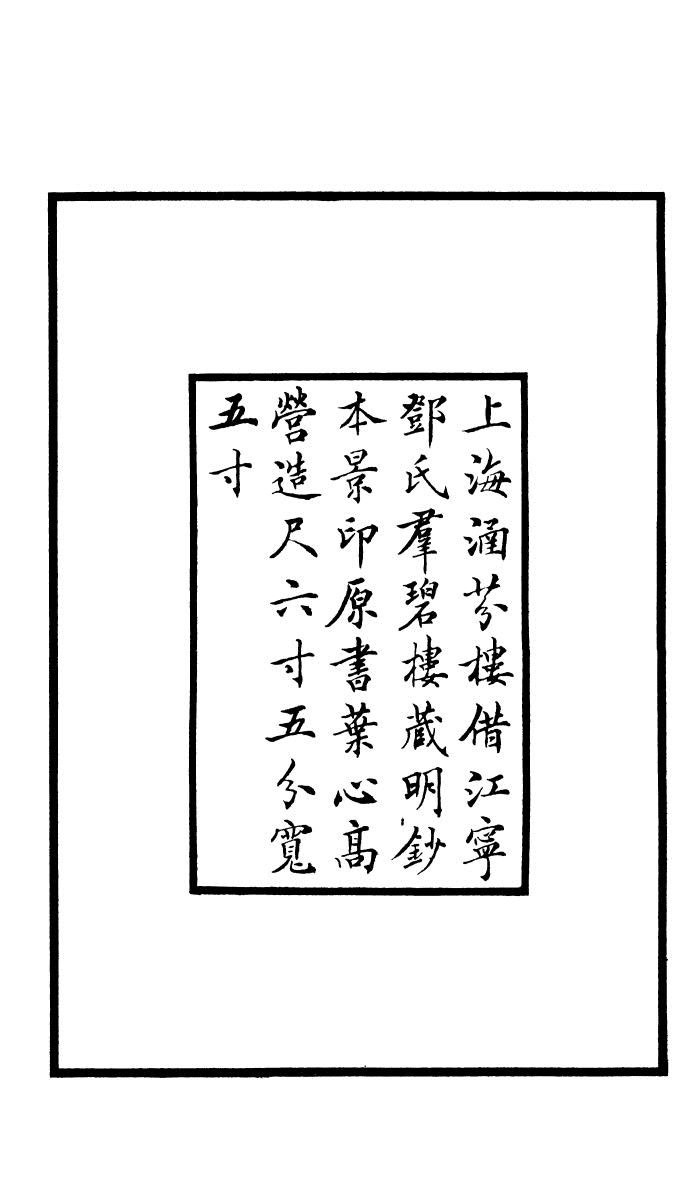 上海涵芬樓借江寧
鄧氏羣碧樓藏明鈔
本景印原書葉心高
營造尺六寸五分寬
五寸